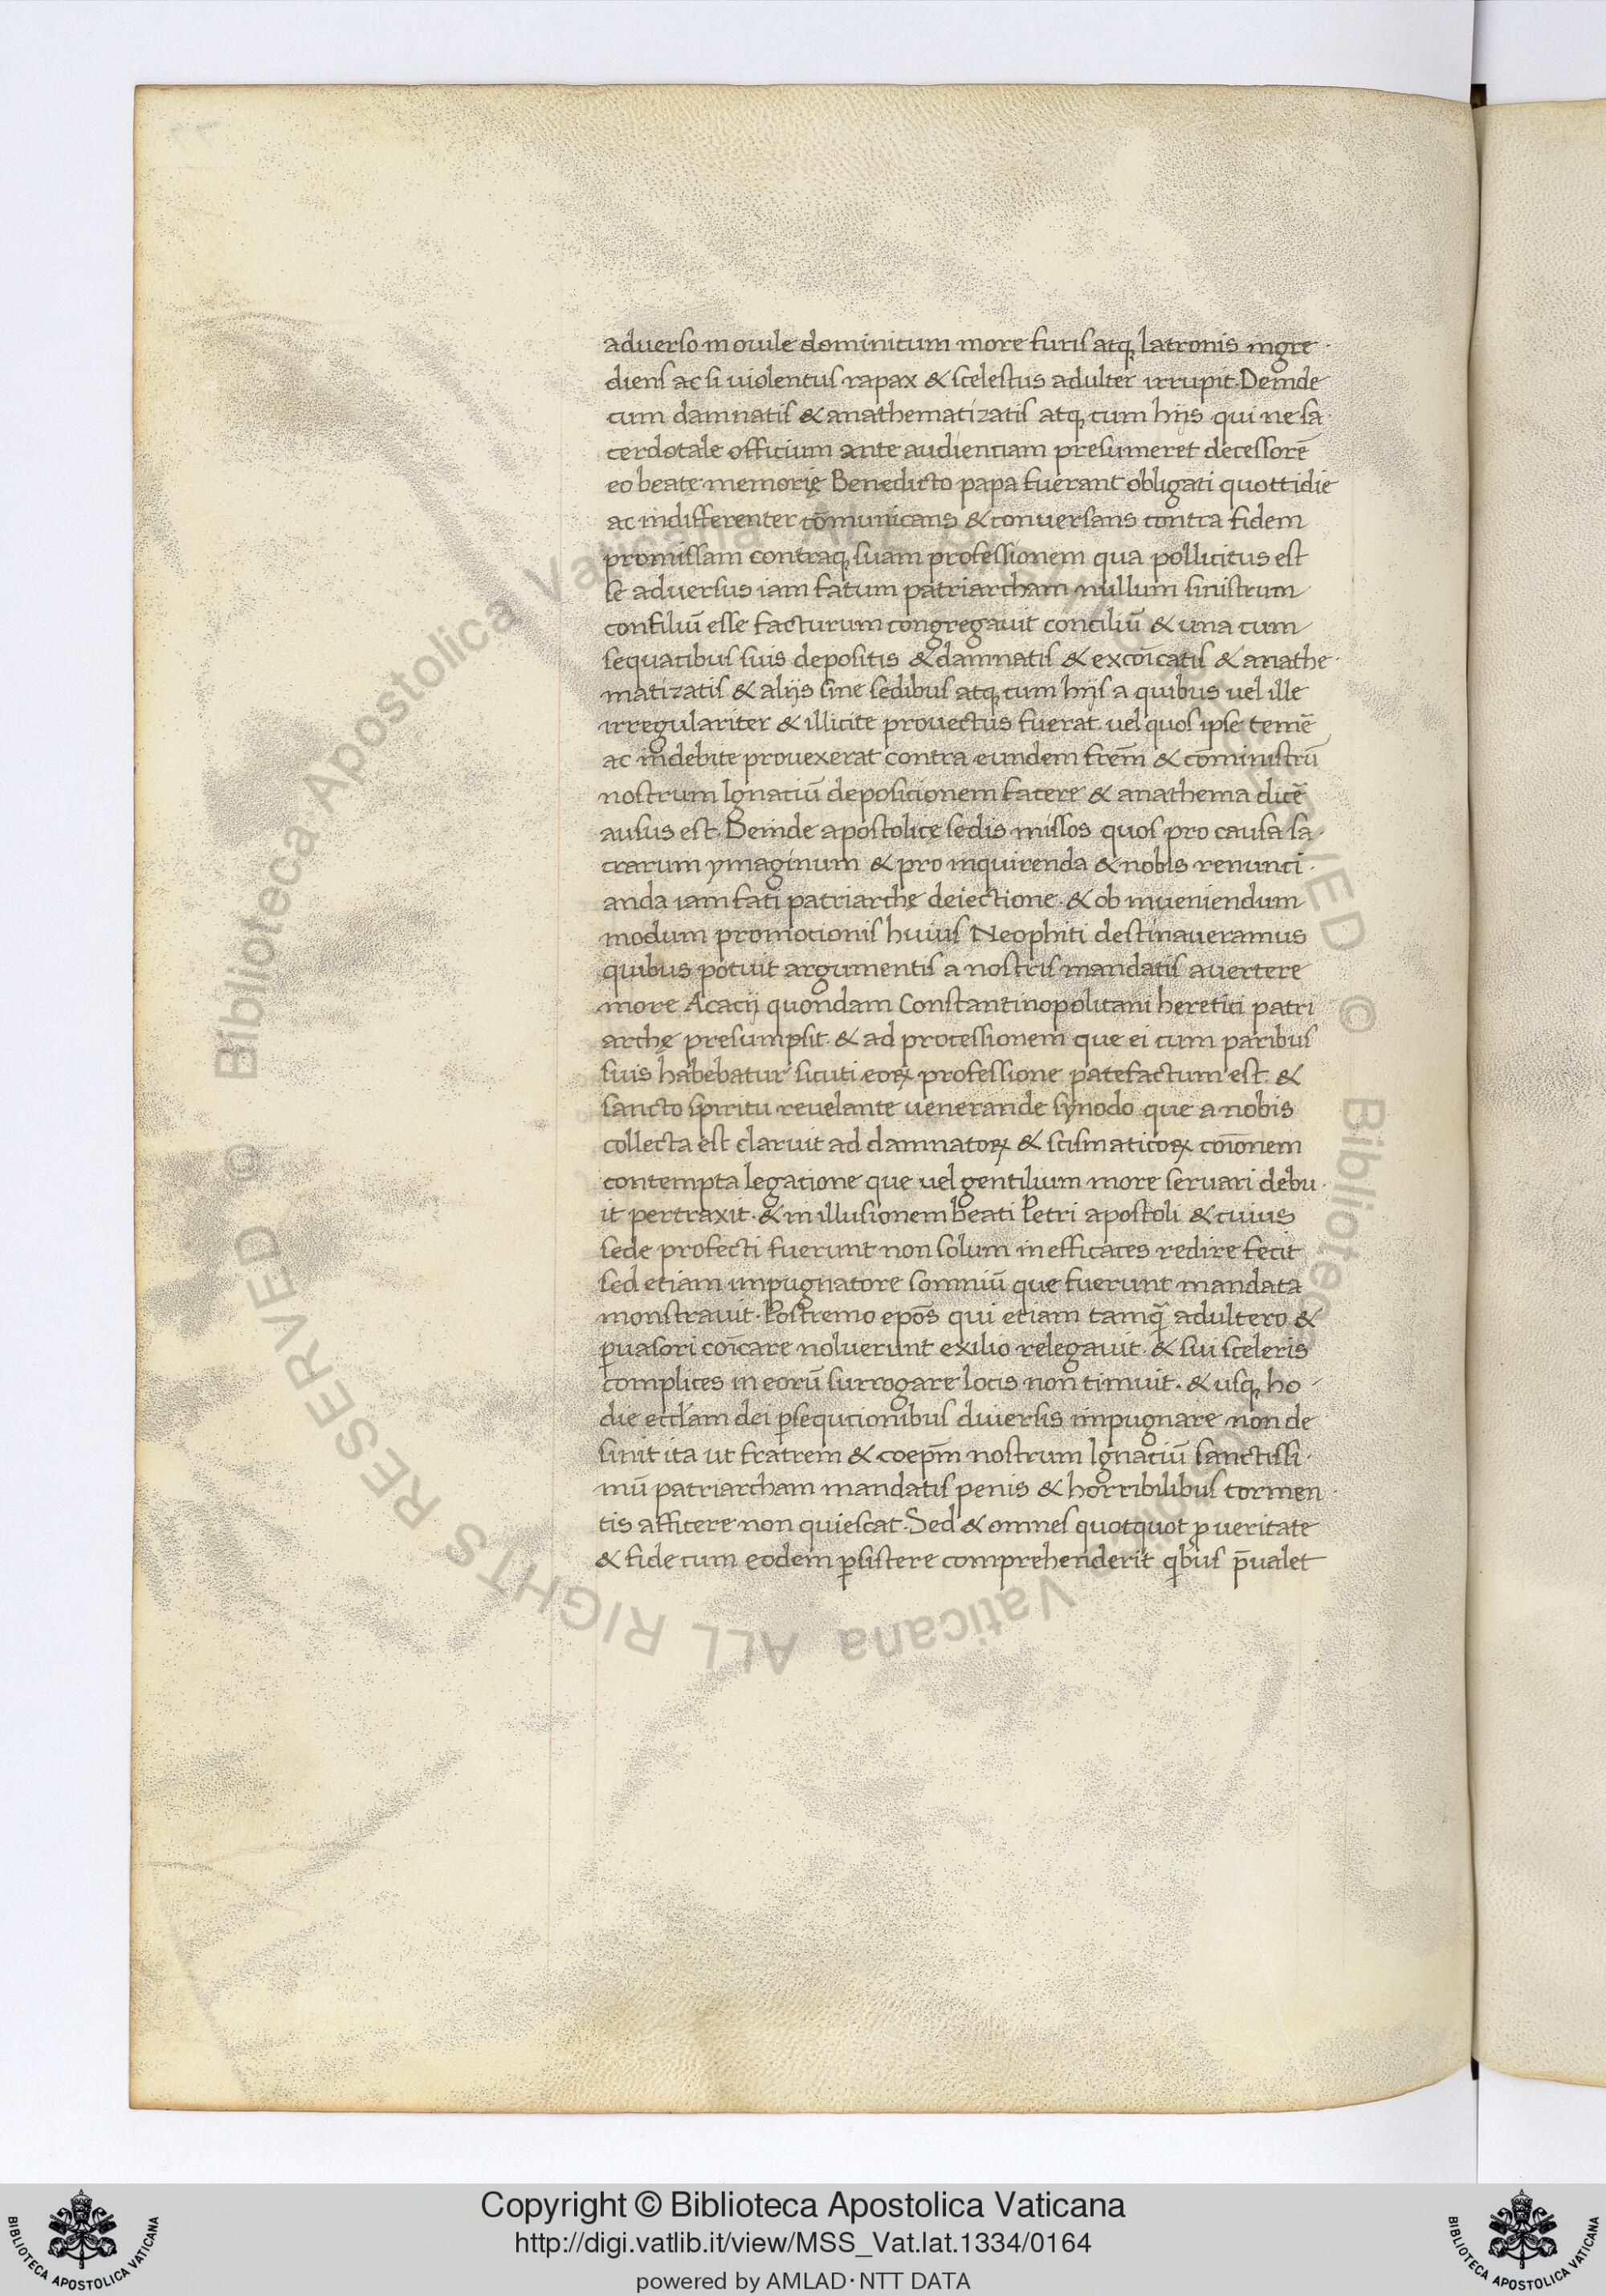 aduerso in ouile dominicum more furis atq latronis ingre
diens ac si uiolentus rapax & scelestus adulter irrupit. Deinde
cum damnatis & anathematizatis atq cum hijs qui ne sa
cerdotale officium ante audientiam presumeret decessorē
eo beatę memorię Benedicto papa fuerant obligati quottidie
ac indifferenter cōmunicans & conuersans contra fidem
promissam contraq suam professionem qua pollicitus est
se aduersus iam fatum patriarcham nullum sinistrum
consiliū esse facturum congregauit conciliū & una cum
sequacibus suis depositis & damnatis & excōicatis & anathe
matizatis & alijs sine sedibus atq cum hijs a quibus uel ille
irregulariter & illicite prouectus fuerat uel quos ipse temē
ac indebite prouexerat contra eundem frēm & cōministrū
nostrum Ignatiū depositionem facere & anathema dicē
ausus est. Deinde apostolicę sedis missos quos pro causa sa
crarum ymaginum & pro inquirenda & nobis renunci
anda iam fati patriarchę deiectione. & ob inueniendum
modum promotionis huius Neophiti destinaueramus
quibus potuit argumentis a nostris mandatis auertere
more Acacij quondam Constantinopolitani heretici patri
archę presumpsit. & ad processionem que ei cum paribus
suis habebatur sicuti eoꝝ professione patefactum est. &
sancto spiritu reuelante uenerande synodo que a nobis
collecta est claruit ad damnatoꝝ & scismaticoꝝ cōionem
contempta legatione que uel gentilium more seruari debu
it pertraxit. & in illusionem beati Petri apostoli & cuius
sede profecti fuerunt non solum inefficaces redire fecit
sed etiam impugnatore somniū que fuerunt mandata
monstrauit. Postremo epōs qui etiam tamq̄ adultero &
puasori cōicare noluerunt exilio relegauit. & sui sceleris
complices in eorū surrogare locis non timuit. & usq ho
die eccl'am dei ꝑsequtionibus diuersis impugnare non de
sinit ita ut fratrem & coepm̄ nostrum Ignatiū sanctissi
mū patriarcham mandatis penis & horribilibus tormen
tis afficere non quiescat. Sed & omnes quotquot ꝓ ueritate
& fide cum eodem ꝑsistere comprehenderit qbus p̄ualet
Biblioteca Apostolica Vaticana ALL RIGHTS RESERVED ©
Copyright © Biblioteca Apostolica Vaticana
http://digi.vatlib.it/view/MSS_Vat.lat.1334/0164
powered by AMLAD·NTT DATA
BIBLIOTECA APOSTOLICA VATICANA
BIBLIOTECA APOSTOLICA VATICANA